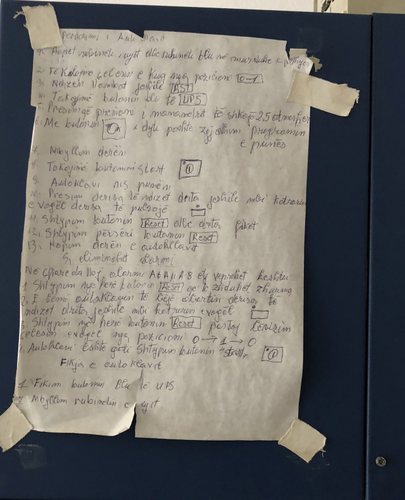 Përdorimi i Autoklavit
1. Hapet rubineti i ujit dhe rubineti blu në murin
2. Të kalojmë çelësin e kuq nga pozicioni 0-1
3. Ndizen llambat jeshile RST
4. Takojmë butonin blu të UPS
5. Presim që presioni i manometrit të shkojë 2.5 atmosfer
6. Me butonin i dytë poshtë zgjedhim programin
e punës
7. Mbyllim derën
8. Takojmë butonin start
9. Autoklavi nis punën
10. Presim derisa të ndizet drita jeshile mbi katrorin
e vogël derisa të pulsojë
11. Shtypim butonin Reset dhe drita fiket
12. Shtypim përsëri butonin Reset
13. Hapim derën e autoklavit
Si eliminohet alarmi
Në çfarëdo lloj alarmi A4 A11 A8 etj veprohet kështu
1. Shtypim një herë butonin Reset që të zhduket zhurma
2. E lëmë autoklavin të bëjë derisa të
ndizet drita jeshile mbi katrorin e vogël
3. Shtypim një herë butonin Reset pastaj lëvizim
çelësin e vogël nga pozicioni 0 → 1 → 0
4. Autoklavi është gati shtypim butonin start
Fikja e autoklavit
1. Fikim butonin blu të UPS
2. Mbyllim rubinetin e ujit